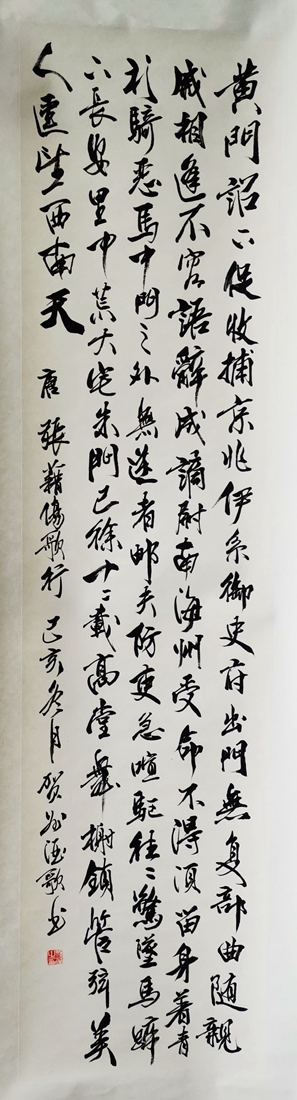 黄門詔下促收捕京兆伊系御史府出門無复部曲随親
戚相逢不容語辭成謫尉南海州受命不得須留身着青
衫騎恶馬中門之外無送者邮夫防吏急喧駈往々驚墮馬蹄
下長安里中荒大宅朱門已徐十二載高堂舞榭鎖管弦美
人遥望西南天 唐 張籍傷歌行 己亥冬月 贺 酒歌书